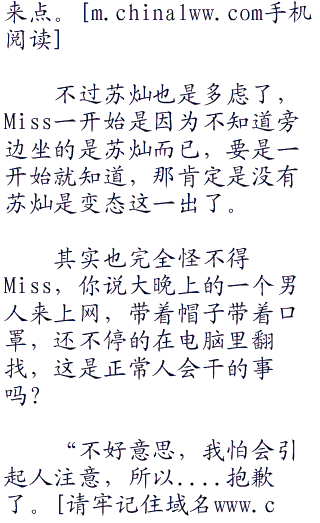 来点。[m.chinalww.com手机
阅读]
不过苏灿也是多虑了，
Miss一开始是因为不知道旁
边坐的是苏灿而已，要是一
开始就知道，那肯定是没有
苏灿是变态这一出了。
其实也完全怪不得
Miss，你说大晚上的一个男
人来上网，带着帽子带着口
罩，还不停的在电脑里翻
找，这是正常人会干的事
吗？
“不好意思，我怕会引
起人注意，所以....抱歉
了。[请牢记住域名www.c